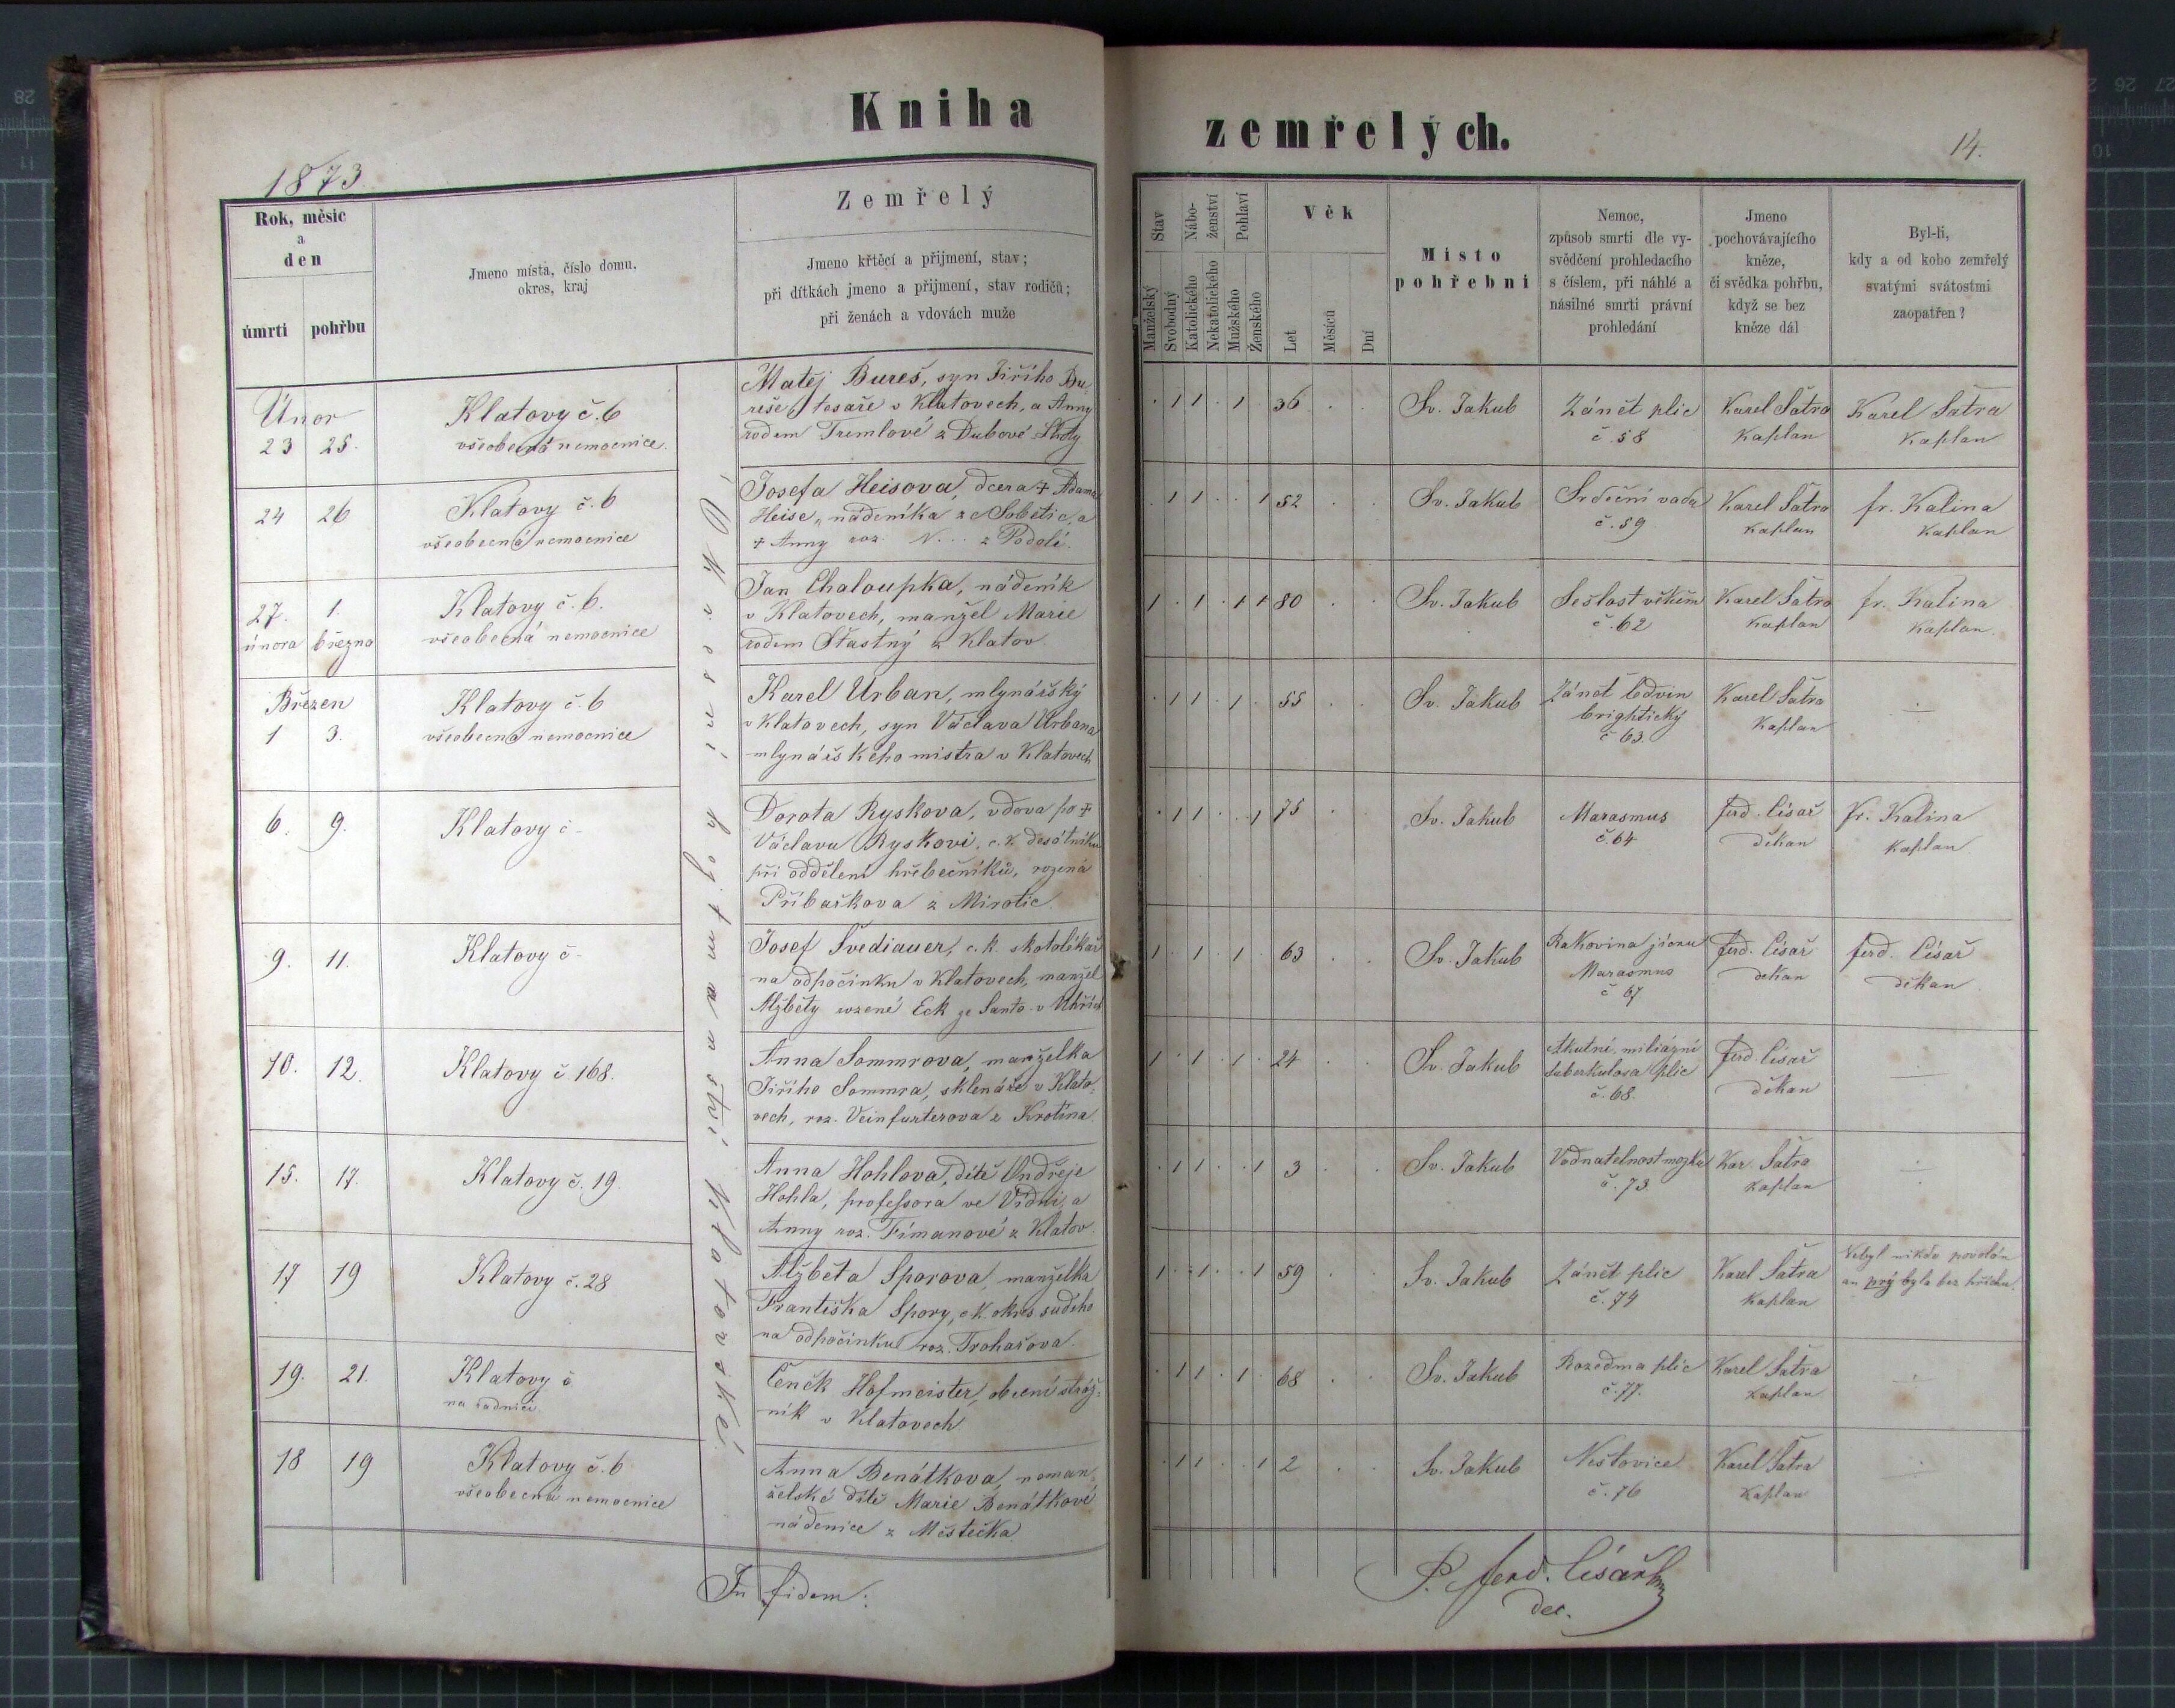 Kniha
zemřelých.
1873.
14.
Rok, měsíc
a
den
úmrtí
pohřbu
Jmeno místa, číslo domu,
okres, kraj
Zemřelý
Jmeno křtěcí a přijmení, stav;
při dítkách jmeno a přijmení, stav rodičů;
při ženách a vdovách muže
Stav
Nábo-
ženství
Pohlaví
Věk
Manželský
Svobodný
Katolického
Nekatolického
Mužského
Ženského
Let
Měsíců
Dní
Místo
pohřební
Nemoc,
způsob smrti dle vy-
svědčení prohledacího
s číslem, při náhlé a
násilné smrti právní
prohledání
Jmeno
pochovávajícího
kněze,
či svědka pohřbu,
když se bez
kněze dál
Byl-li,
kdy a od koho zemřelý
svatými svátostmi
zaopatřen?
Okresní hejtmanství Klatovské
Únor
23 25.
Klatovy č. 6
všeobecná nemocnice.
Matěj Bureš, syn Jiřího Bu-
reše, tesaře v Klatovech, a Anny
rodem Tremlové z Dubové Lhoty
. 1 1 . 1 . 36 . .
Sv. Jakub
Zánět plic
č. 58
Karel Šatra
Kaplan
Karel Šatra
Kaplan
24 26
Klatovy č. 6
všeobecná nemocnice
Josefa Heisova, dcera + Adama
Heise, nádeníka ze Sobětic, a
+ Anny roz. N... z Podolí.
. 1 1 . . 1 52 . .
Sv. Jakub
Srdeční vada
č. 59
Karel Šatra
Kaplan
fr. Kalina
Kaplan
27. 1.
února března
Klatovy č. 6.
všeobecná nemocnice
Jan Chaloupka, nádeník
v Klatovech, manžel Marie
rodem Šťastný z Klatov
1 . 1 . 1 1 80 . .
Sv. Jakub
Sešlost věkem
č. 62
Karel Šatra
Kaplan
fr. Kalina
Kaplan.
Březen
1 3.
Klatovy č. 6
všeobecná nemocnice
Karel Urban, mlynářský
v Klatovech, syn Václava Urbana
mlynářského mistra v Klatovech
. 1 1 . 1 . 55 . .
Sv. Jakub
Zánět ledvin
brightický
č 63.
Karel Šatra
Kaplan
6. 9.
Klatovy č -
Dorota Ryskova, vdova po +
Václavu Ryskovi, c. k. desátníku
při oddělení hřebečníků, rozená
Přibaškova z Mirotic
. 1 1 . . 1 75 .
Sv. Jakub
Marasmus
č. 64
ferd. Císař
děkan
fr. Kalina
Kaplan
9. 11.
Klatovy č -
Josef Švediauer, c. k. skotolékař
na odpočinku v Klatovech, manžel
Alžběty rozené Eck ze Santo v Uhřích
1 . 1 . 1 . 63 . .
Sv. Jakub
Rakovina jícnu
Marasmus
č 67
ferd. Císař
děkan
ferd. Císař
děkan.
10. 12.
Klatovy č 168.
Anna Sommrova, manželka
Jiřího Sommra, sklenáře v Klato-
vech, roz. Veinfurterova z Krotína.
1 . 1 . 1 . 24 . .
Sv. Jakub
Akutní miliázní
tuberkulosa plic
č. 68.
ferd. Císař
děkan
15. 17.
Klatovy č. 19.
Anna Hohlova, dítě Ondřeje
Hohla, professora ve Vídni, a
Anny roz. Fimanové z Klatov
. 1 1 . . 1 3 . .
Sv. Jakub
Vodnatelnost mozku
č. 73.
Kar. Šatra
Kaplan
17 19
Klatovy č. 28
Alžběta Sporova, manželka
Františka Spory, c. k. okres. sudího
na odpočinku, roz. Trohařova.
1 . 1 . . 1 59 . .
Sv. Jakub
Zánět plic
č. 74
Karel Šatra
Kaplan
Nebyl nikdo povolán
an prý byla bez hříchu.
19. 21.
Klatovy č
na radnici
Čeněk Hofmeister, obecní stráž-
ník v Klatovech
. 1 1 . 1 . 68 . .
Sv. Jakub
Rozedma plic
č. 77.
Karel Šatra
Kaplan
18 19
Klatovy č. 6
všeobecná nemocnice
Anna Benátkova, neman-
želské dítě Marie Benátkové
nádenice z Městečka
. 1 1 . . 1 2 . .
Sv. Jakub
Neštovice
č. 76
Karel Šatra
Kaplan
In fidem:
P. ferd. Císař
dec.